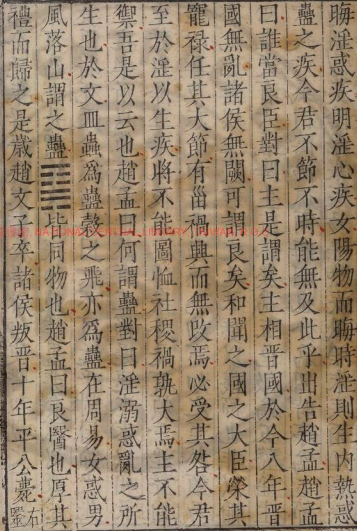 晦淫惑疾明淫心疾女陽物而晦時淫則生内熱惑
蠱之疾今君不節不時能無及此乎出告趙孟趙孟
曰誰當良臣對曰主是謂矣主相晋國於今八年晋
國無亂諸侯無闕可謂良矣和聞之國之大臣榮其
寵禄任其大節有菑禍興而無改焉必受其咎今君
至於淫以生疾將不能圖恤社稷禍孰大焉主不能
禦吾是以云也趙孟曰何謂蠱對曰淫溺惑亂之所
生也於文皿蟲爲蠱穀之飛亦爲蠱在周易女惑男
風落山謂之蠱䷑皆同物也趙孟曰良醫也厚其
禮而歸之是歲趙文子卒諸侯叛晋十年平公薨
右